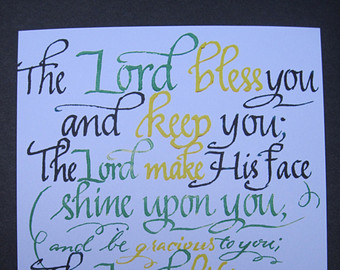 The Lord bless you
and keep you;
The Lord make His face
(shine upon you,
(and be gracious to you;
The Lord